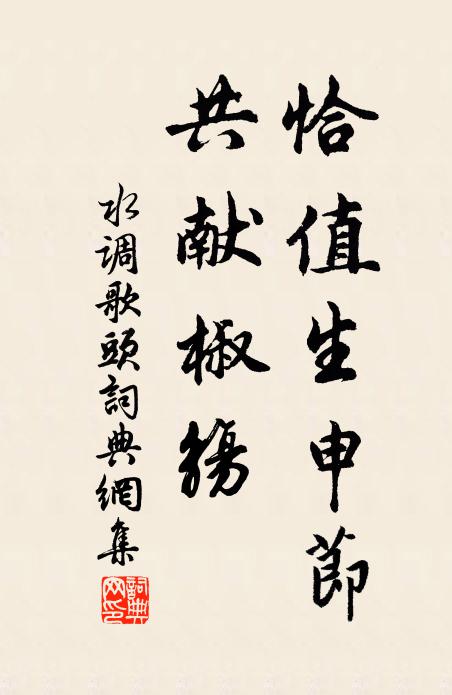 恰值生申節
共献椒觞
水调歌頭詞典網集
詞典网印